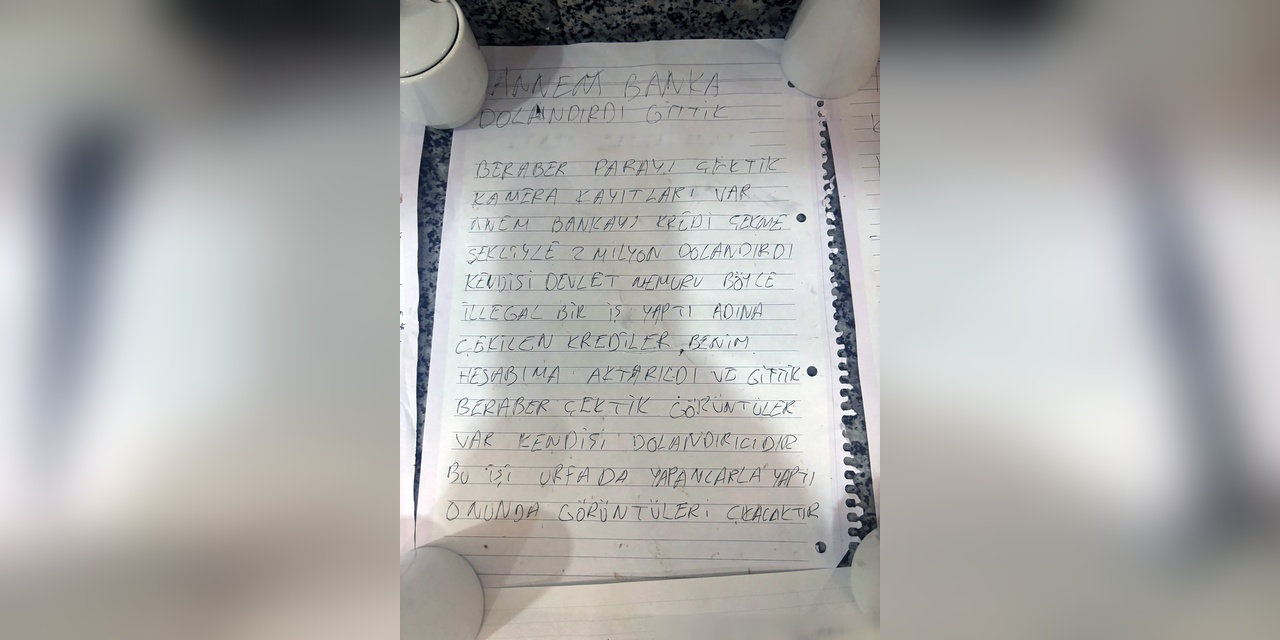 ANNEM BANKA
DOLANDIRDI GİTTİK
BERABER PARAYI ÇEKTİK
KAMERA KAYITLARI VAR
ANEM BANKAYI KREDİ ÇEKME
ŞEKLİYLE 2 MİLYON DOLANDIRDI
KENDİSİ DEVLET MEMURU BÖYLE
İLLEGAL BİR İŞ YAPTI ADINA
ÇEKİLEN KREDİLER BENİM
HESABIMA AKTARILDI VE GİTTİK
BERABER ÇEKTİK GÖRÜNTÜLER
VAR KENDİSİ DOLANDIRICIDIR
BU İŞİ URFADA YAPANLARLA YAPTI
ONUNDA GÖRÜNTÜLERİ ÇIKACAKTIR